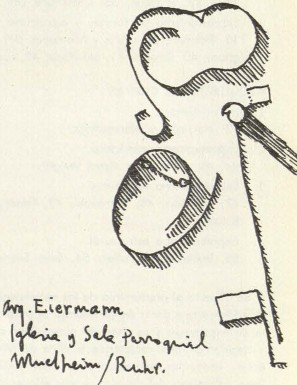 arq. Eiermann
Iglesia y Sala Parroquial
Muelheim/Ruhr.